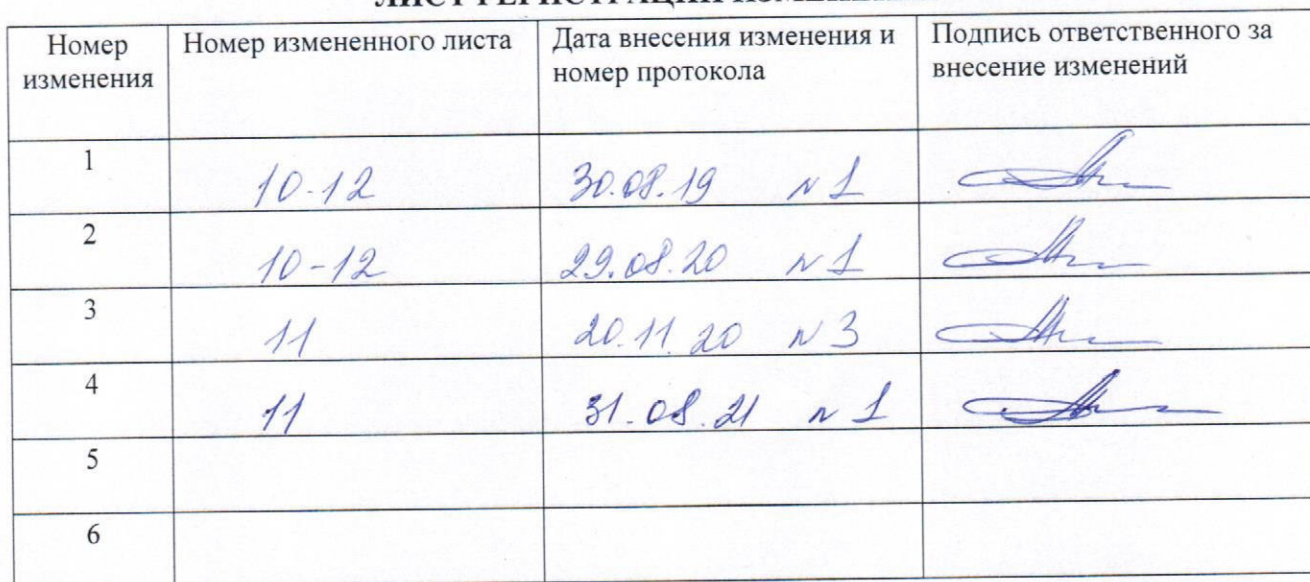 ЛИСТ РЕГИСТРАЦИИ
Номер изменения
Номер измененного листа
Дата внесения изменения и номер протокола
Подпись ответственного за внесение изменений
1 10-12 30.08.19 № 1
2 10-12 29.08.20 № 1
3 11 20.11.20 № 3
4 11 31.08.21 № 1
5
6